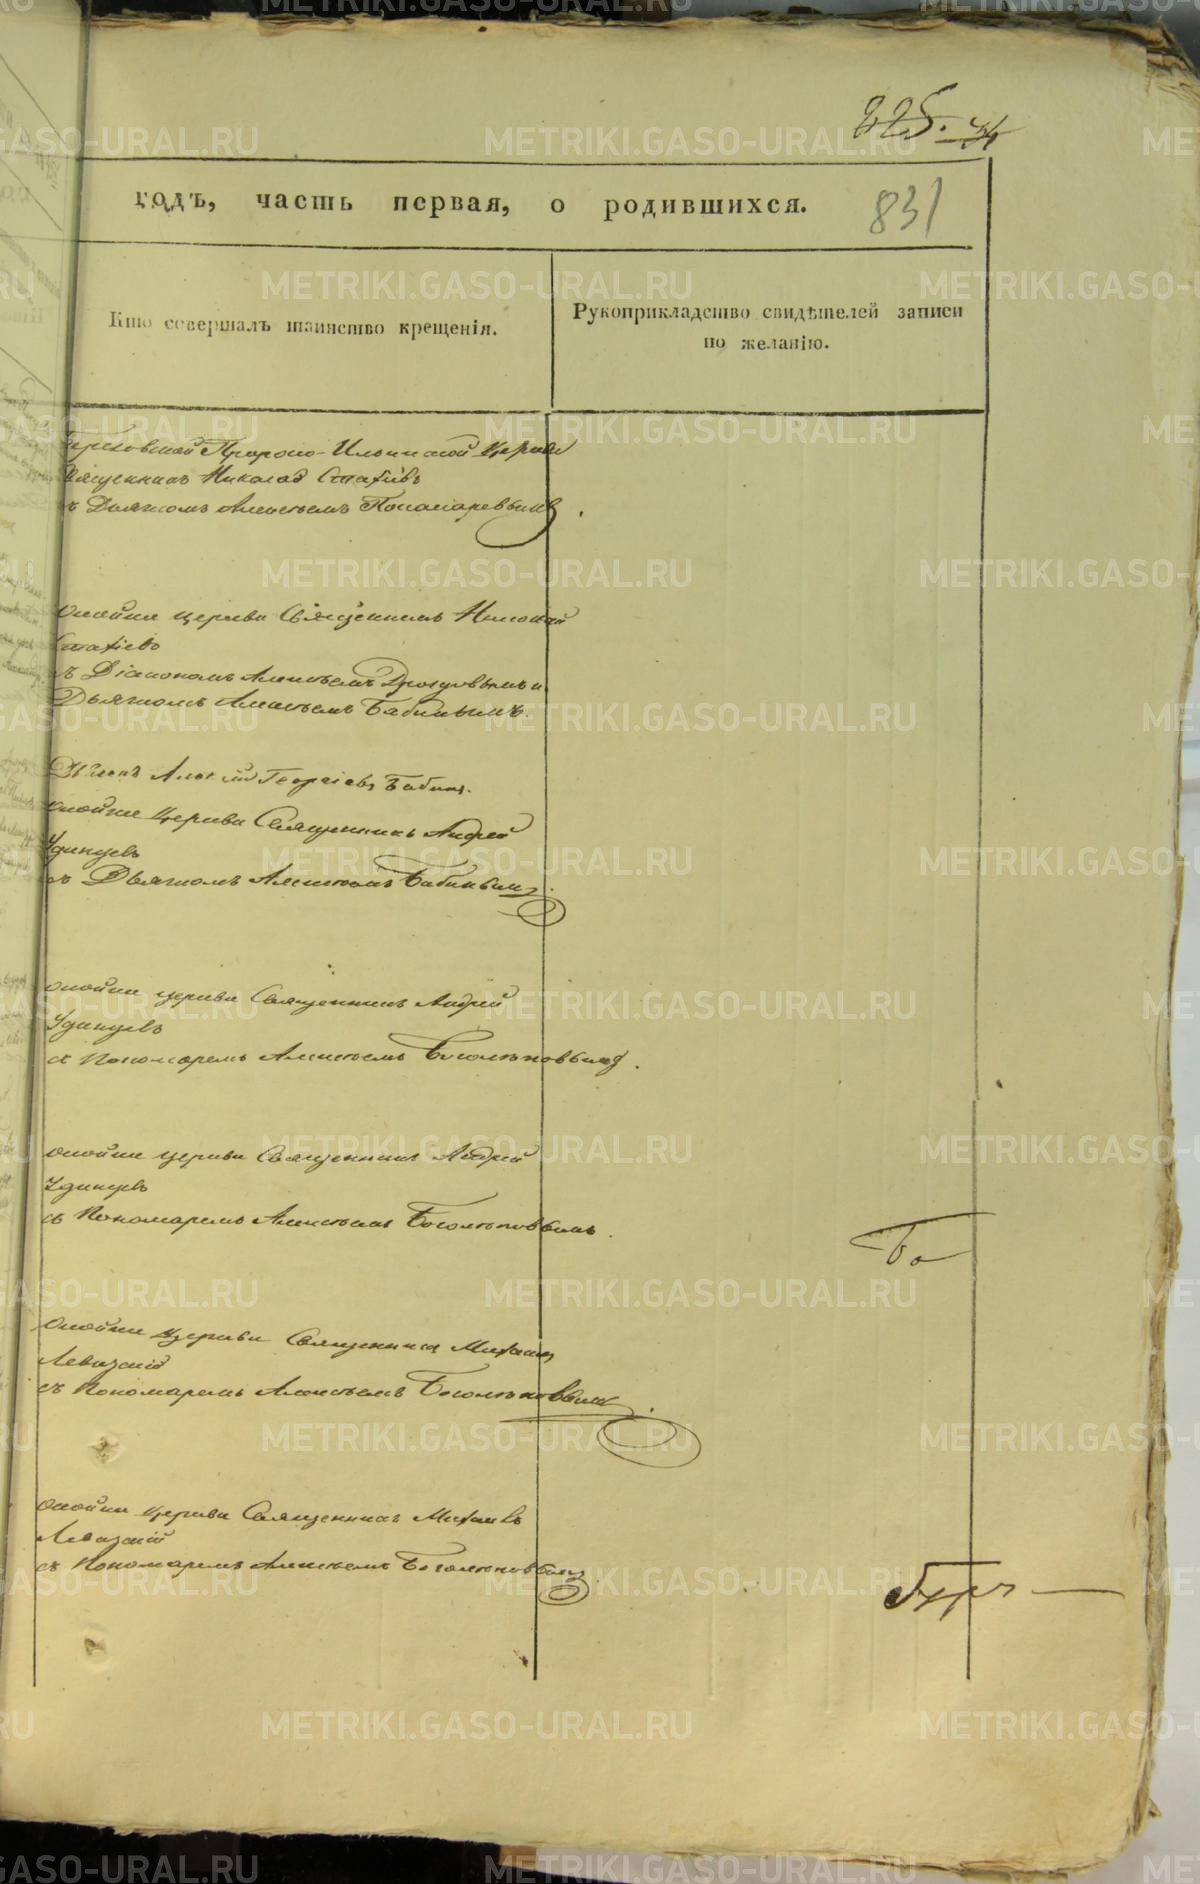 225.
831
годъ, часть первая, о родившихся.
Кто совершалъ таинство крещенія.
Рукоприкладство свидѣтелей записи
по желанію.
Пророко-Ильинской Церкви
Священникъ Николай Стахіевъ
съ Дьячкомъ Алексѣемъ Пономаревымъ.
оной же церкви Священникъ Николай
Стахіевъ
съ Діакономъ Алексѣемъ и
Дьячкомъ Алексѣемъ Бабинымъ.
Алексѣй Георгіевъ Бабинъ.
оной же Церкви Священникъ Андрей
Удинцевъ
съ Дьячкомъ Алексѣемъ Бабинымъ.
оной же церкви Священникъ Андрей
Удинцевъ
съ Пономаремъ Алексѣемъ Боголѣповымъ.
оной же церкви Священникъ Андрей
Удинцевъ
съ Пономаремъ Алексѣемъ Боголѣповымъ.
оной же Церкви Священникъ Михаилъ
Левазскій
съ Пономаремъ Алексѣемъ Боголѣповымъ.
оной же Церкви Священникъ Михаилъ
Левазскій
съ Пономаремъ Алексѣемъ Боголѣповымъ.
METRIKI.GASO-URAL.RU